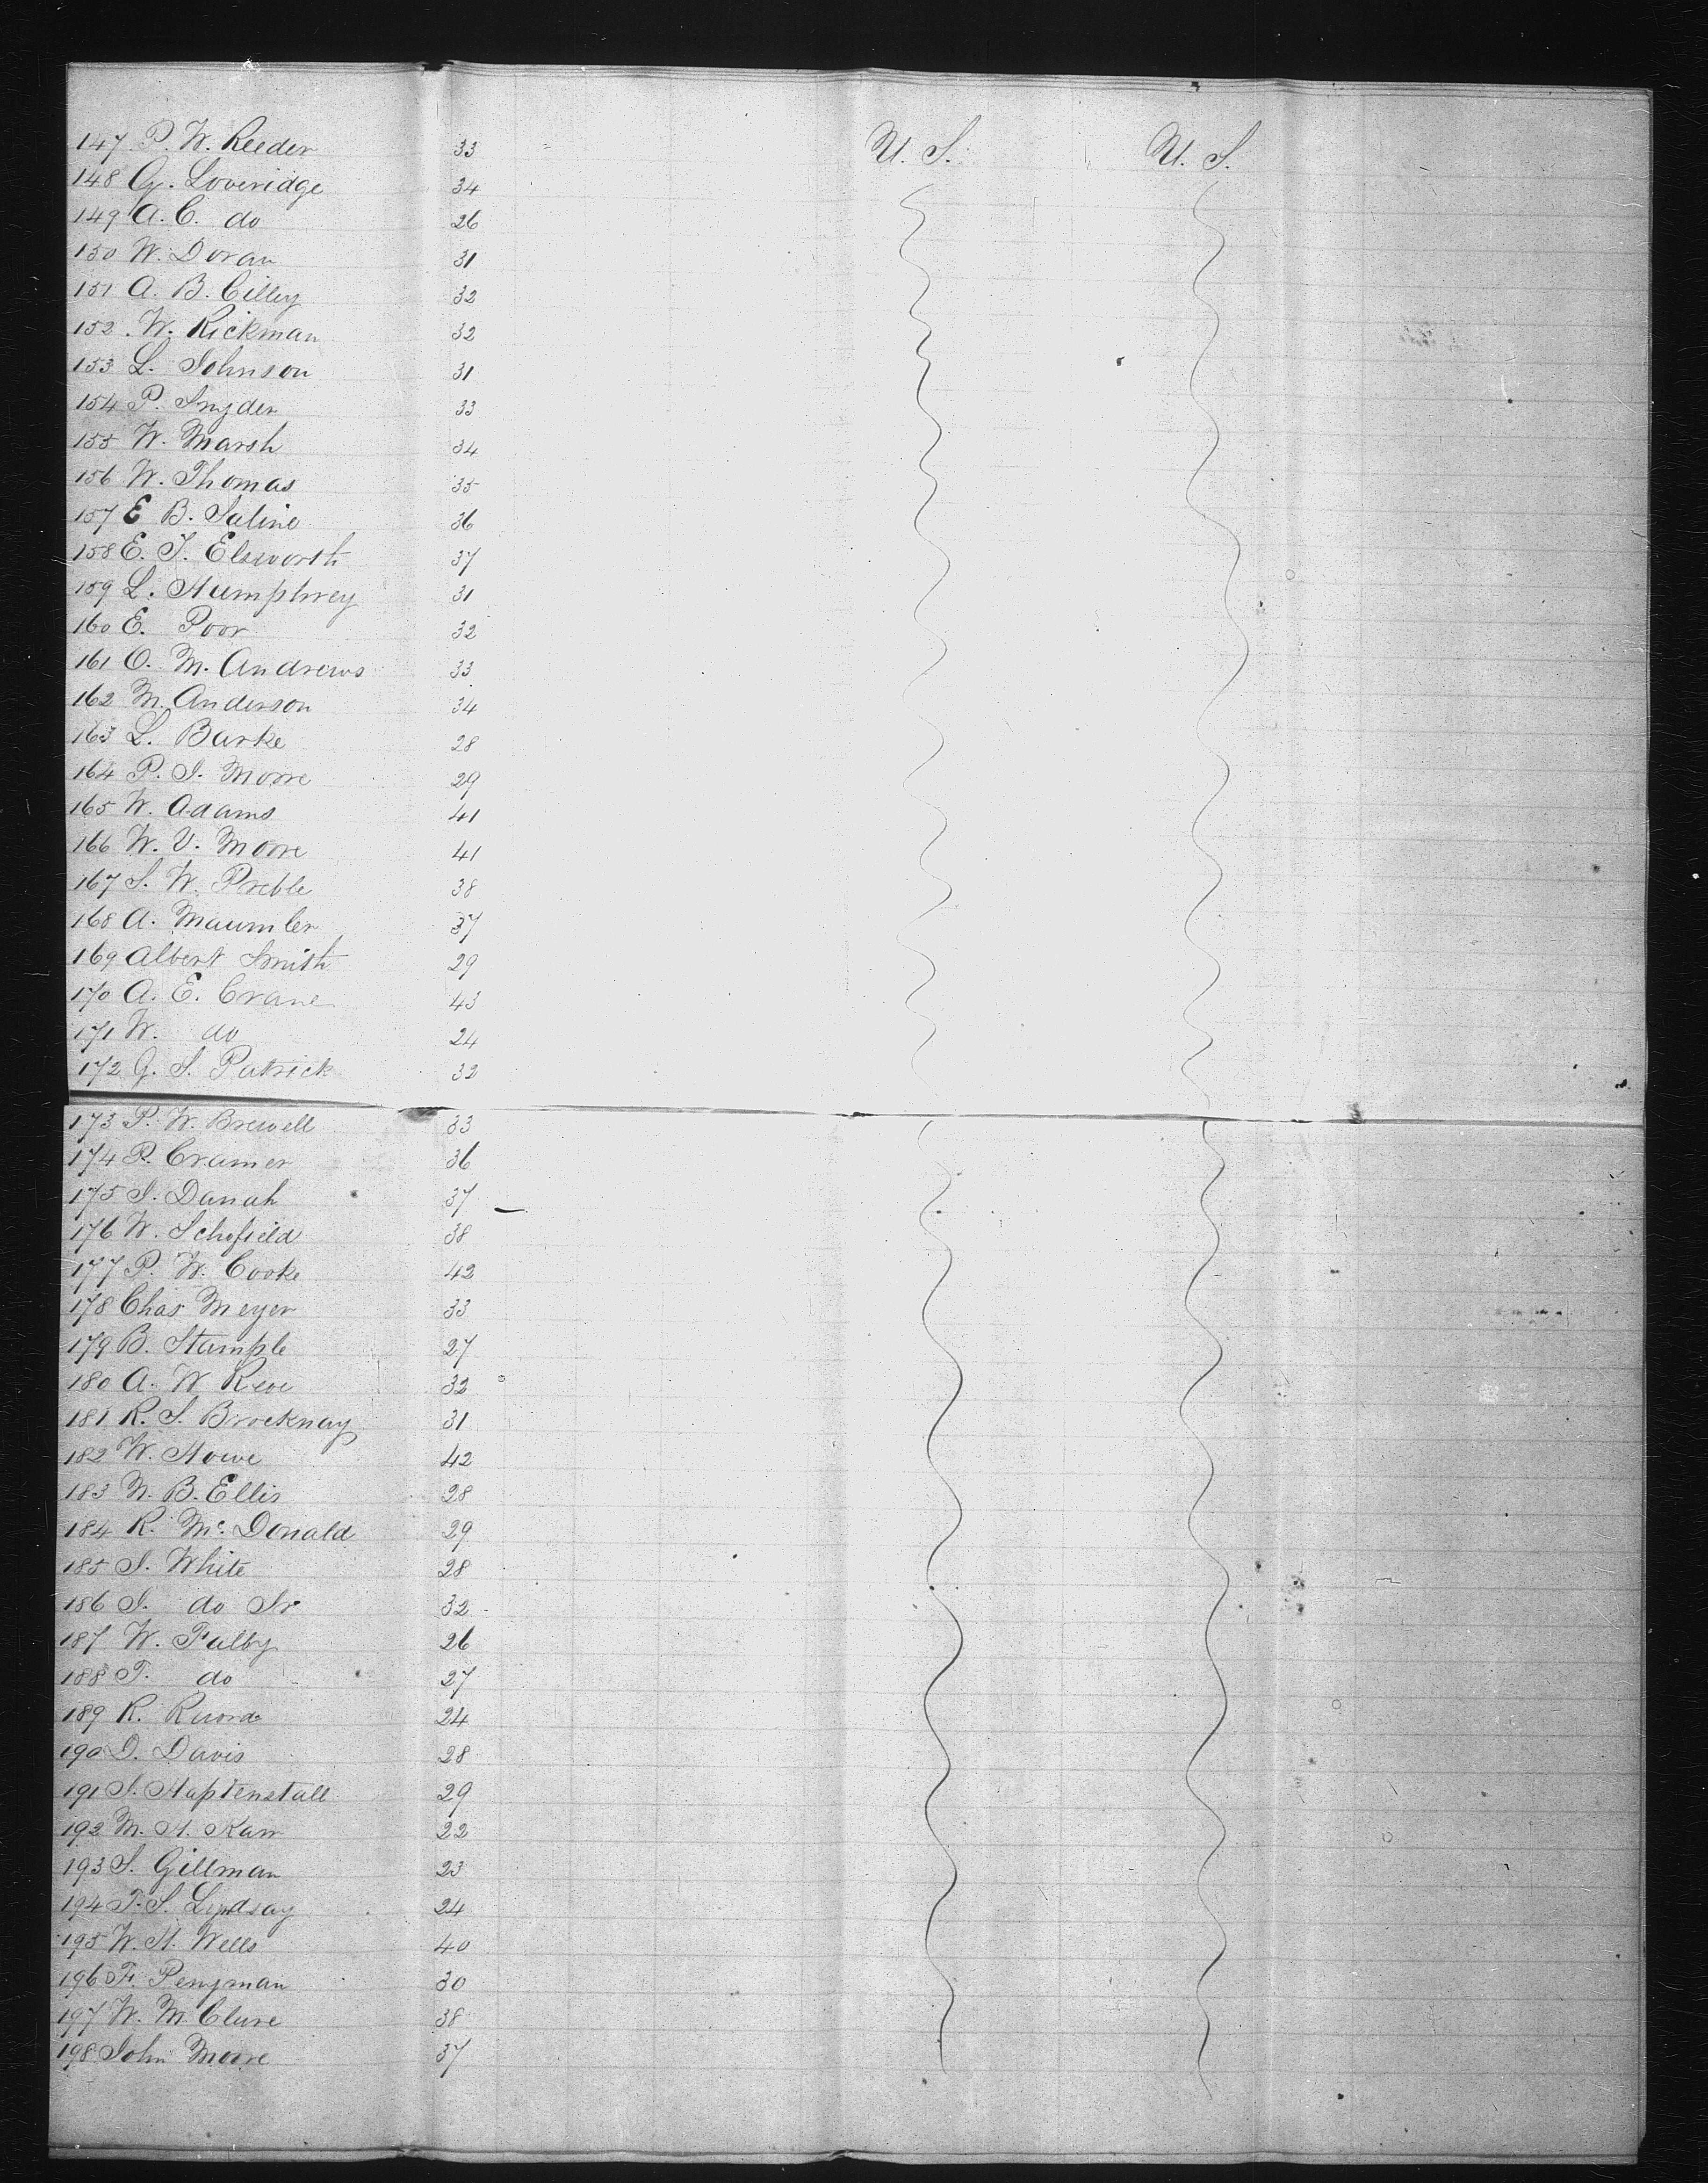 147 P. W. Reeder 33 U. S. U. S.
148 G. Loveridge 34
149 A. C. do 26
150 W. Doran 31
151 A. B. Cilley 32
152 W. Rickman 32
153 L. Johnson 31
154 P. Snyder 33
155 W. Marsh 34
156 W. Thomas 35
157 E B. Saline 36
158 E. T. Elsworth 37
159 L. Humphrey 31
160 E. Poor 32
161 O. M. Andrews 33
162 M. Anderson 34
163 L. Burke 28
164 P. S. Moore 29
165 W. Adams 41
166 W. V. Moore 41
167 S. W. Preble 38
168 A. Maumler 37
169 Albert Smith 29
170 A. E. Crane 43
171 W. do 24
172 G. S. Patrick 32
173 P. W. Brewell 33
174 P. Cramer 36
175 S. Danah 37
176 W. Schofield 38
177 P. W. Cooke 42
178 Chas Meyer 33
179 B. Stample 27
180 A. W 32
181 R. S. Brocknay 31
182 W. Howe 42
183 N. B. Ellis 28
184 R. Mc. Donald 29
185 S. White 28
186 S. do Sr 32
187 W. Falby 26
188 T. do 27
189 R. 24
190 D. Davis 28
191 S. Haptenstall 29
192 M. H. Karr 22
193 S. Gillman 23
194 T. S. Lyndsay 24
195 W. H. Wells 40
196 F. Penyman 30
197 W. M Clure 38
198 John Moore 37